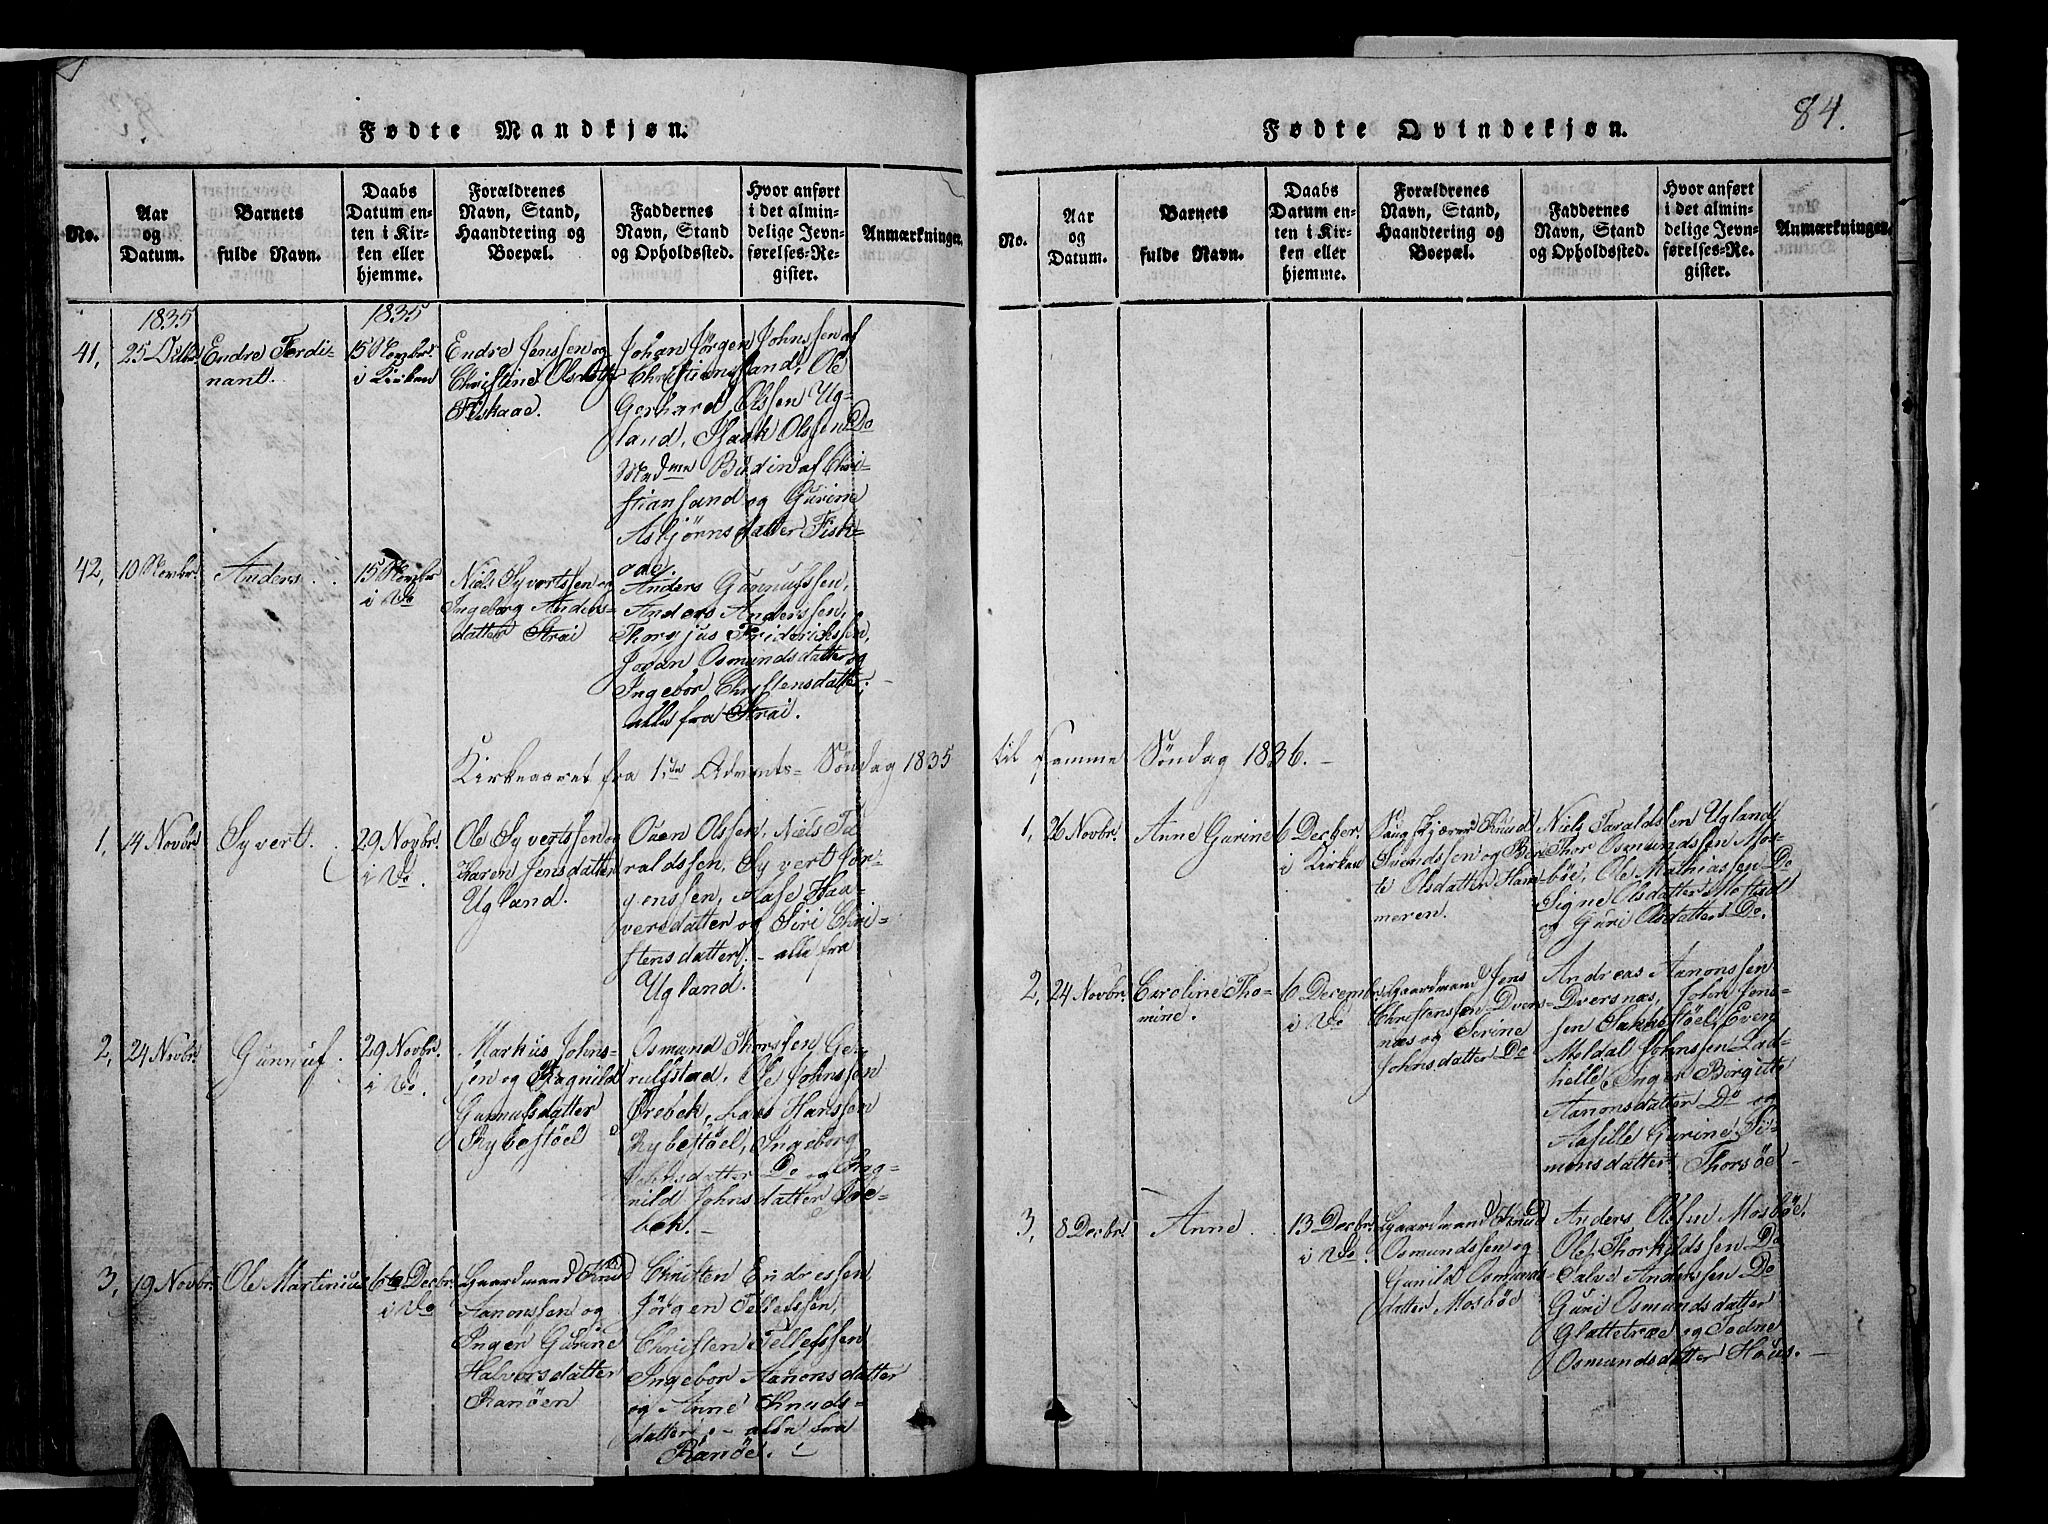 Fødte Mandkjøn.
No.
Aar
og
Datum.
Barnets
fulde Navn.
Daabs
Datum en-
ten i Kir-
ken eller
hjemme.
Forældrenes
Navn, Stand,
Haandtering og
Boepæl.
Faddernes
Navn, Stand
og Opholdssted.
Hvor anført
i det almin-
delige Jevn-
førelses-Re-
gister.
Anmærkninger.
1835
41,
25 Octbr
Endre Ferdi-
nant.
1835
15 Novembr
i Kirken
Endre Jenssen og
Christine Olsdatter
Fiskaae.
Johan Jörgen Johnssen af
Christiansand, Ole
Gerhard Olssen Ug-
land, Isaak Olssen Do
Madme Bödin af Chri-
stiansand og Gurine
Asbjörnsdatter Fisk-
aae.
42,
10 Novbr.
Anders.
15 Novembr
i Do
Niels Syvertssen og
Ingeborg Anders-
datter Strai
Anders Gunnufssen,
Anders Anderssen,
Thorgjus Friderichssen,
Joran Osmundsdatter og
Ingebor Christensdatter,
alle fra Strai.
Kirkeaaret fra 1ste Advents-Söndag 1835
1,
14 Novbr.
Syvert.
29 Novbr.
i Do.
Ole Syvertssen og
Karen Jensdatter
Ugland.
Ouen Olssen, Niels Ta-
raldssen, Syvert Jör-
genssen, Aase Haa-
versdatter og Siri Chri-
stensdatter. - alle fra
Ugland.
2,
24 Novbr.
Gunnuf.
29 Novbr.
i Do.
Markus Johns-
sen og Ragnild
Gunnufsdatter
Rybestöel
Osmund Thorssen Ge-
rulfstad, Ole Johnssen
Örebek, Lars Hanssen
Rybestöel, Ingeborg
Do og Rag-
nild Johnsdatter Öre-
bek.-
3,
19 Novbr.
Ole Martinius
6te Decbr.
i Do
Gaardmand Knud
Aanonssen og
Inger Gurine
Halvorsdatter
Ranöen
Christen Endressen
Jörgen Tellefssen,
Christen Tellefssen
Ingebor Aanonsdatter
og Anne Knuds-
datter. - alle fra
Ranöe.
84.
Fødte Qvindekjøn.
No.
Aar
og
Datum.
Barnets
fulde Navn.
Daabs
Datum en-
ten i Kir-
ken eller
hjemme.
Forældrenes
Navn, Stand,
Haandtering og
Boepæl.
Faddernes
Navn, Stand
og Opholdssted.
Hvor anført
i det almin-
delige Jevn-
førelses-Re-
gister.
Anmærkninger.
til samme Söndag 1836.-
1,
26 Novbr.
Anne Gurine
6 Decber.
i Kirken
Knud
Svendssen og Ben-
te Olsdatter Ham-
meren.
Niels Taraldssen Ugland,
Thor Osmundssen Mos-
böe, Ole Mathiassen Do
Signe Olsdatter Moseid
og Guri Olsdatter Do.
2,
24 Novbr.
Caroline Tho-
mine.
6 Decembr.
i Do
Gaardmand Jens
Christenssen Dvers-
næs og Serine
Johnsdatter Do
Andreas Aanonssen
Dversnæs, John Jens-
sen Sukkestöel, Even
Moldal Johnssen Lad-
helle, Inger Bergitte
Aanonsdatter Do og
Aasille Gurine Si-
monsdatter Thorsöe-
3,
8 Decbr.
Anne.
13 Decbr.
i Do.
Gaardmand Knud
Osmundssen og
Gunild Osmunds-
datter Mosböe
Anders Olssen Mosböe,
Ole Thorkildssen Do
Salve Anderssen Do
Guri Osmundsdatter
Glattetræ og Todne
Osmundsdatter Höus.-